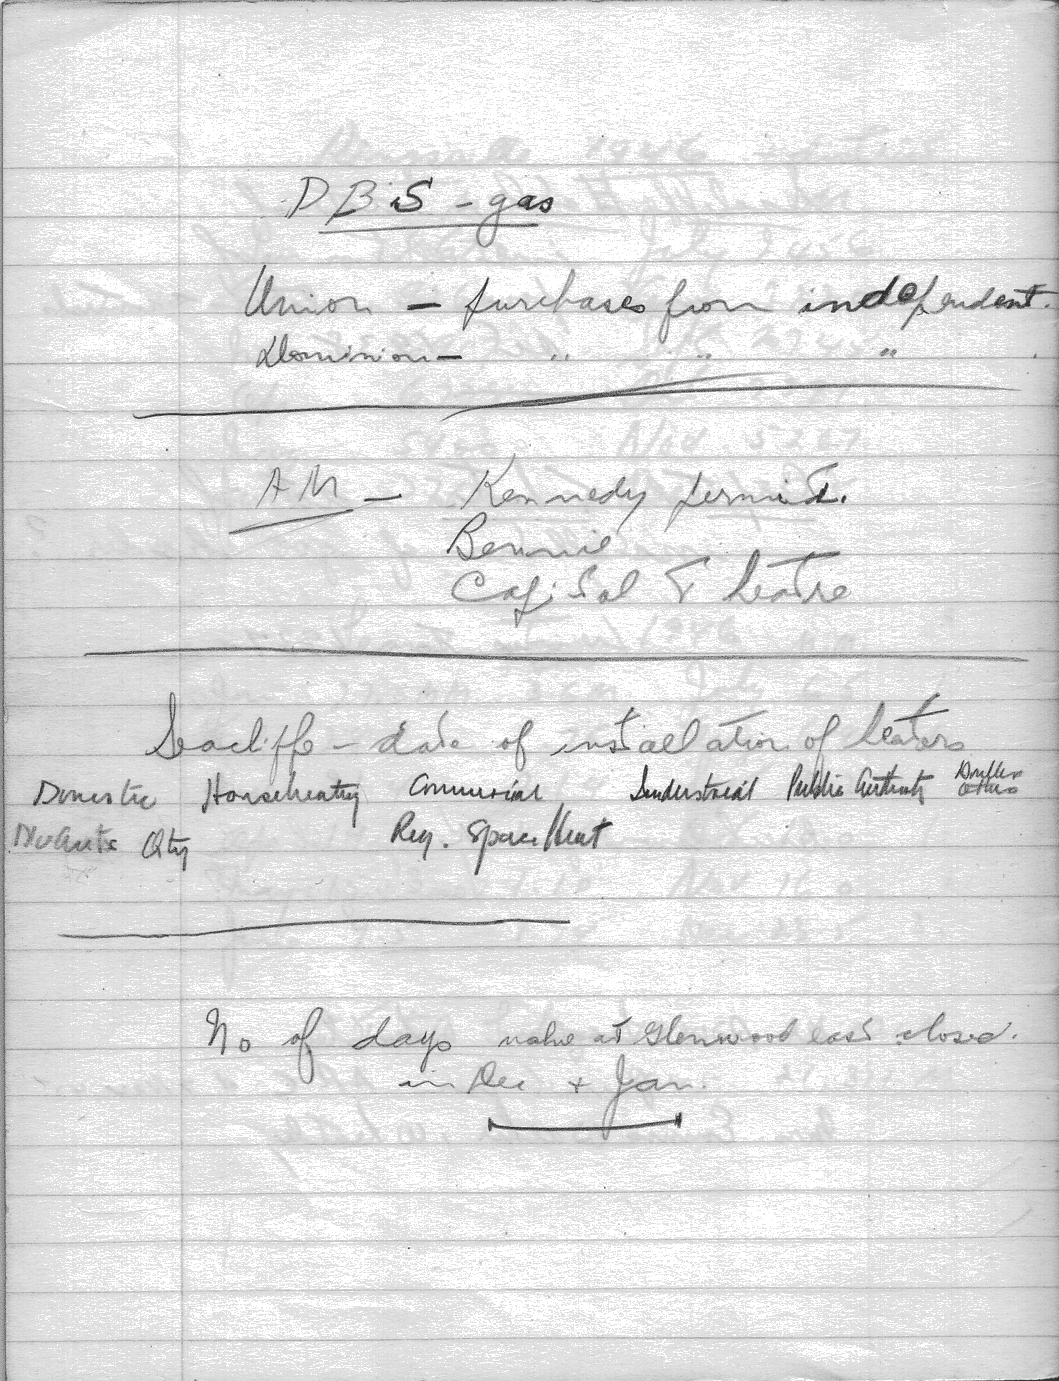 DBS - gas
Union - purchases from independent.
Dominion - " " "
AM - Kennedy permit.
Bennie
Capital Theatre
Seacliffe - date of installation of heaters
Domestic Househeating Commercial Industrial Public Authority Duplex Others
Qty Reg. Space Heat
No of days valve at Glenwood east closed.
in Dec + Jan.